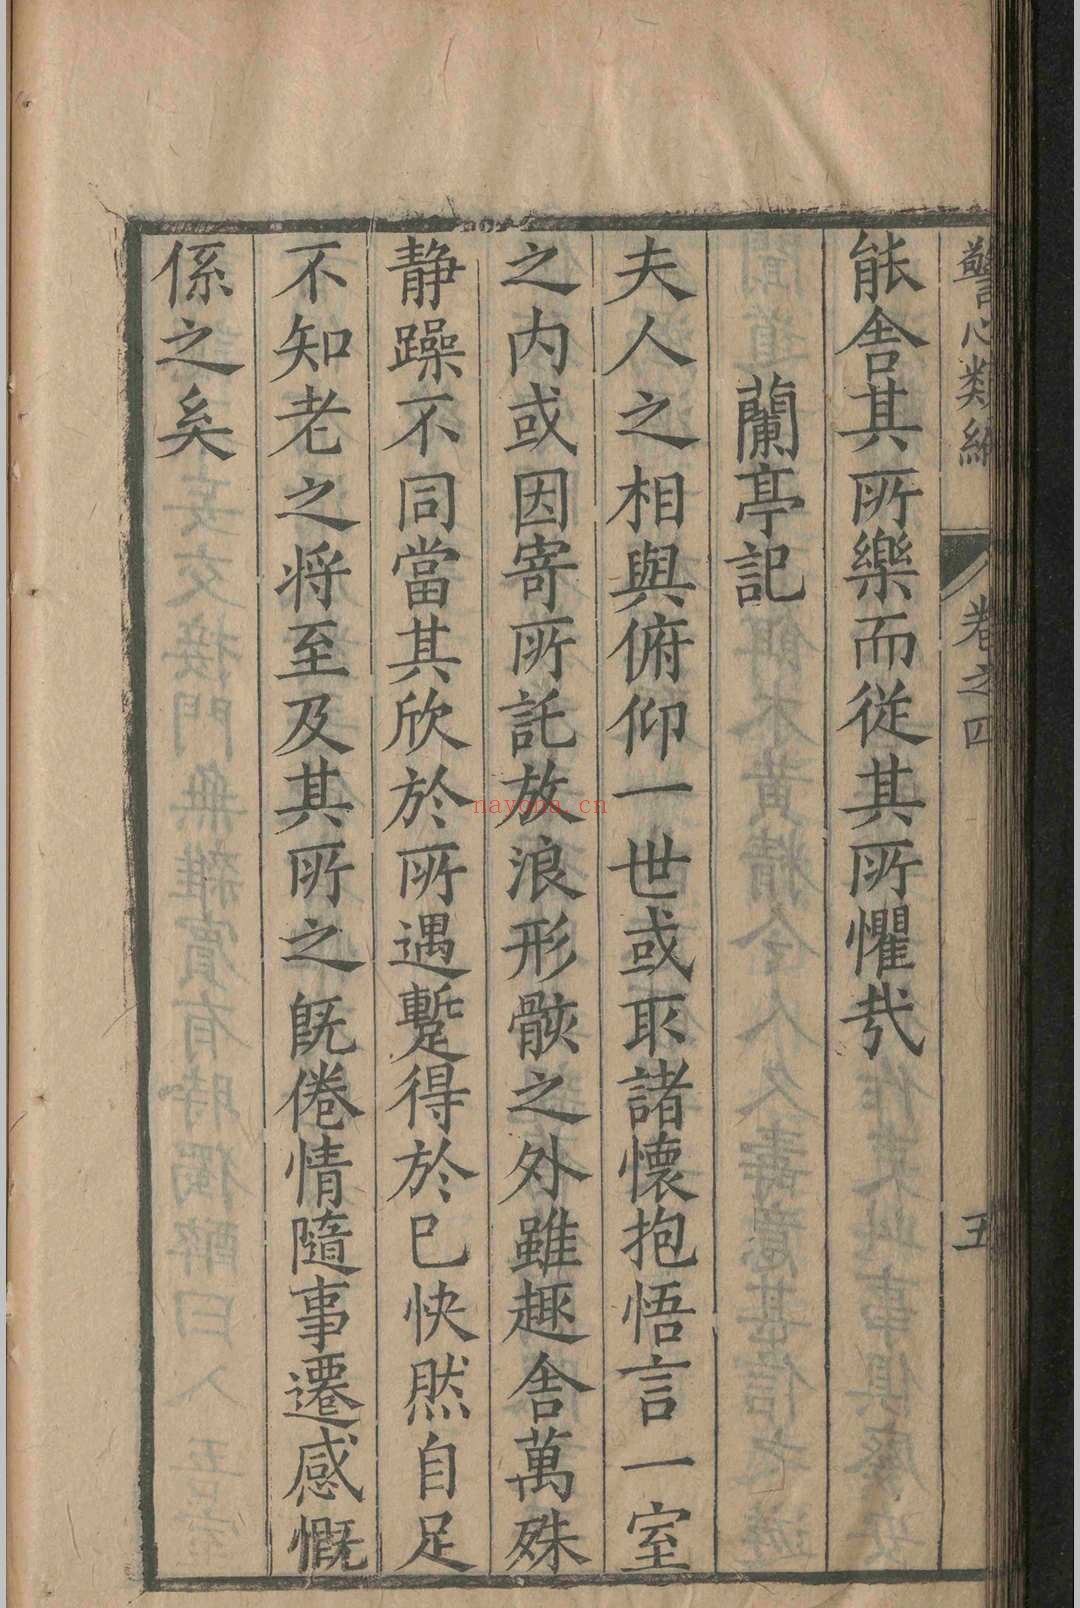 警心類編 卷之四 五
能舍其所樂而從其所懼哉
蘭亭記
夫人之相與俯仰一世或取諸懷抱悟言一室
之内或因寄所託放浪形骸之外雖趣舍萬殊
静躁不同當其欣於所遇蹔得於已快然自足
不知老之将至及其所之既倦情隨事遷感慨
係之矣
nayona.cn